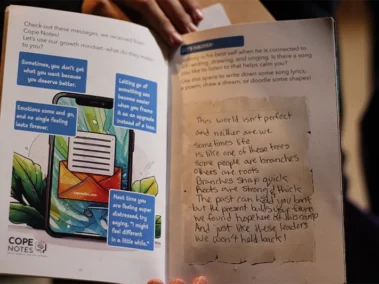 Check out these messages we received from
Cope Notes!
Let's use our growth mindset- what do they mean
to you?
Sometimes, you don't get
what you want because
you deserve better.
Letting go of
something can
become easier
when you frame
it as an upgrade
instead of a loss.
Emotions come and go,
and no single feeling
lasts forever.
Next time you
are feeling super
distressed, try
saying, "I might
feel different
in a little while."
COPE
NOTES
best self when he is connected to
writing, drawing, and singing. Is there a song
you like to listen to that helps calm you?
Use this space to write down some song lyrics,
a poem, draw a dream, or doodle some shapes!
This world isn't perfect
and neither are we
Sometimes life
is like one of these trees
Some people are branches
others are roots
Branches snap quick
Roots are strong & thick
The past can hold you back
but the present builds your future
We found hope here at this camp
And just like these leaders
We won't hold back!